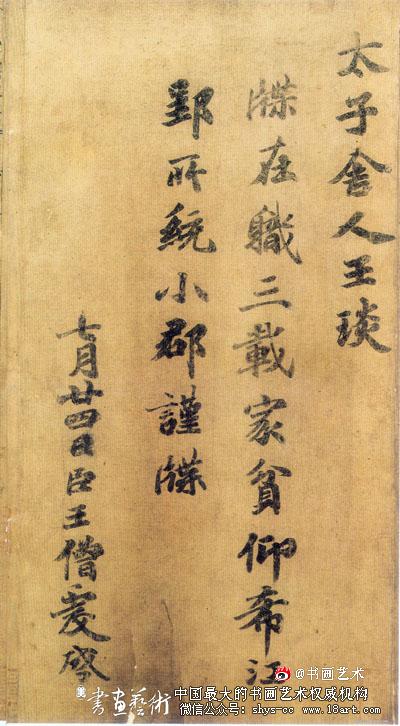 太子舍人王琰
牒在職三載家貧仰希江
郢所統小郡謹牒
七月廿四日臣王僧虔啓
@书画艺术
美 書畫藝術
中国最大的书画艺术权威机构
微信公众号: shys-cc www.18art.com